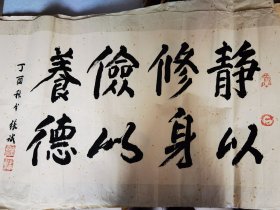 静以
修身
儉以
養德
丁酉秋月張斌